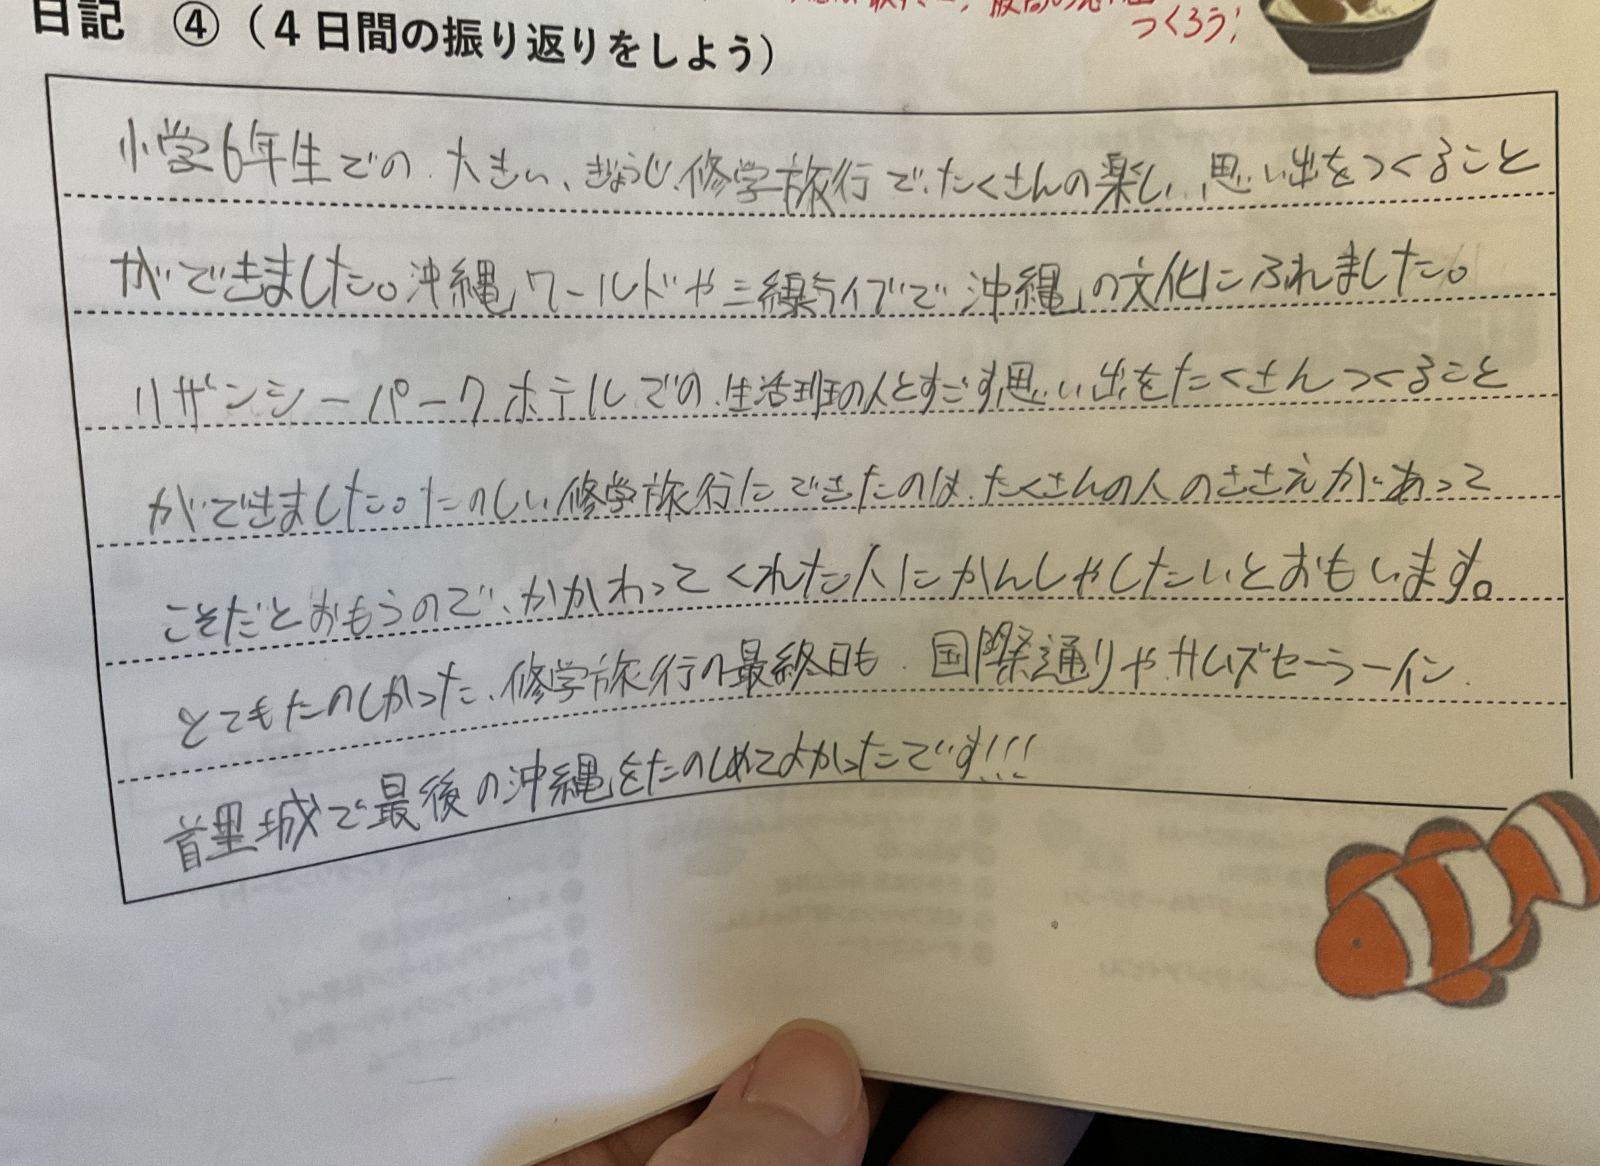 つくろう！
日記 ④（４日間の振り返りをしよう）
小学6年生での、大きい、ぎょうじ、修学旅行で、たくさんの楽しい、思い出をつくること
ができました。沖縄ワールドや三線ライブで沖縄の文化にふれました。
リザンシーパークホテルでの、生活班の人とすごす思い出をたくさんつくること
ができました。たのしい修学旅行にできたのは、たくさんの人のささえがあって
こそだとおもうので、かかわってくれた人にかんしゃしたいとおもいます。
とてもたのしかった、修学旅行の最終日も、国際通りやサムズセーラーイン、
首里城で最後の沖縄をたのしめてよかったです!!!